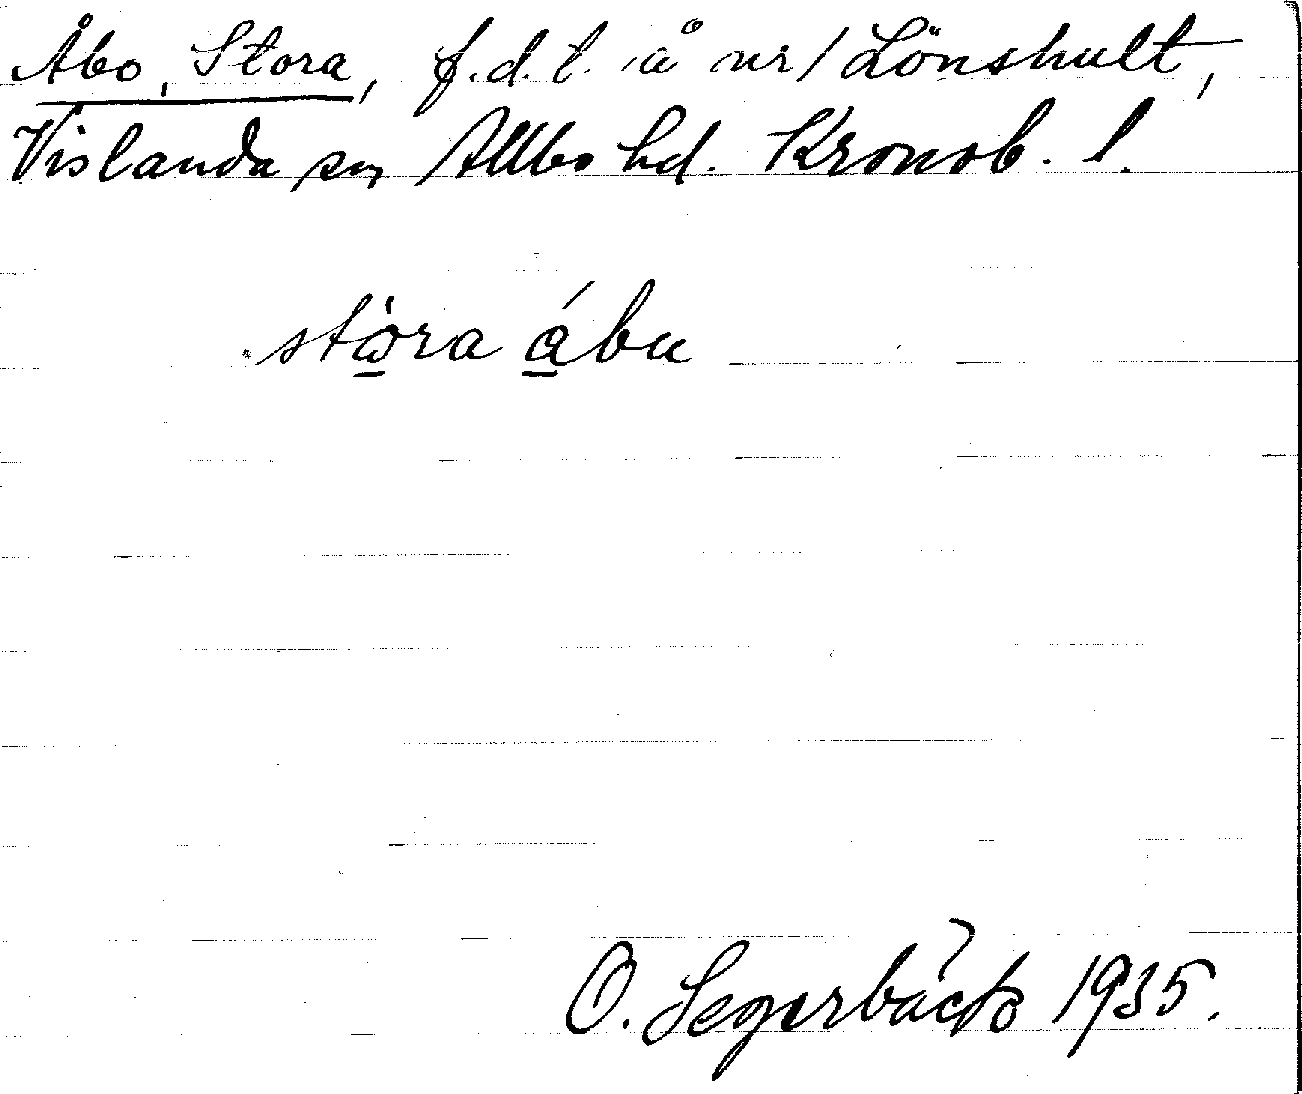 Åbo, Stora, f.d.t. å nr 1 Lönshult,
Vislanda sn, Allbo hd. Kronob. l.
stòra ábu
O. Segerbäck 1935.